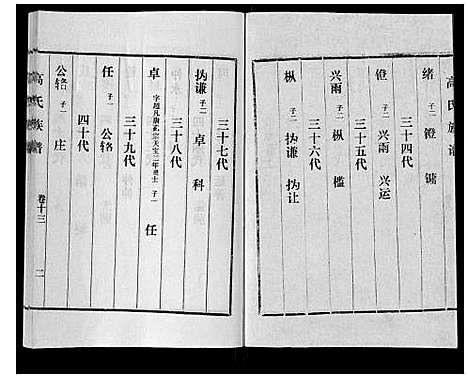 高氏族谱
绪 子二 镫 镛
三十四代
镫 子二 兴雨 兴运
三十五代
兴雨 子二 枞 槛
三十六代
枞 子二 㧑谦 㧑让
三十七代
㧑谦 子二 卓 科
三十八代
卓 字超凡唐武宗天宝二年进士 子一 任
三十九代
任 子一 公辂
四十代
公辂 子一 庄
高氏族谱 卷十三 二